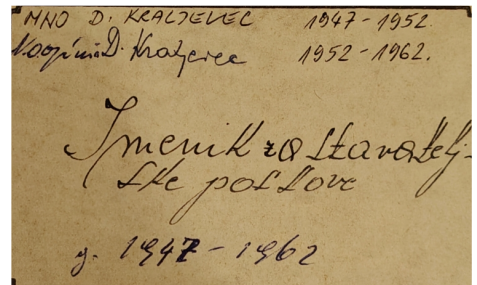 MNO D. KRALJEVEC 1947-1952.
Općina D. Kraljevec 1952-1962.
Imenik za staratelj-
ske poslove
g. 1947-1962